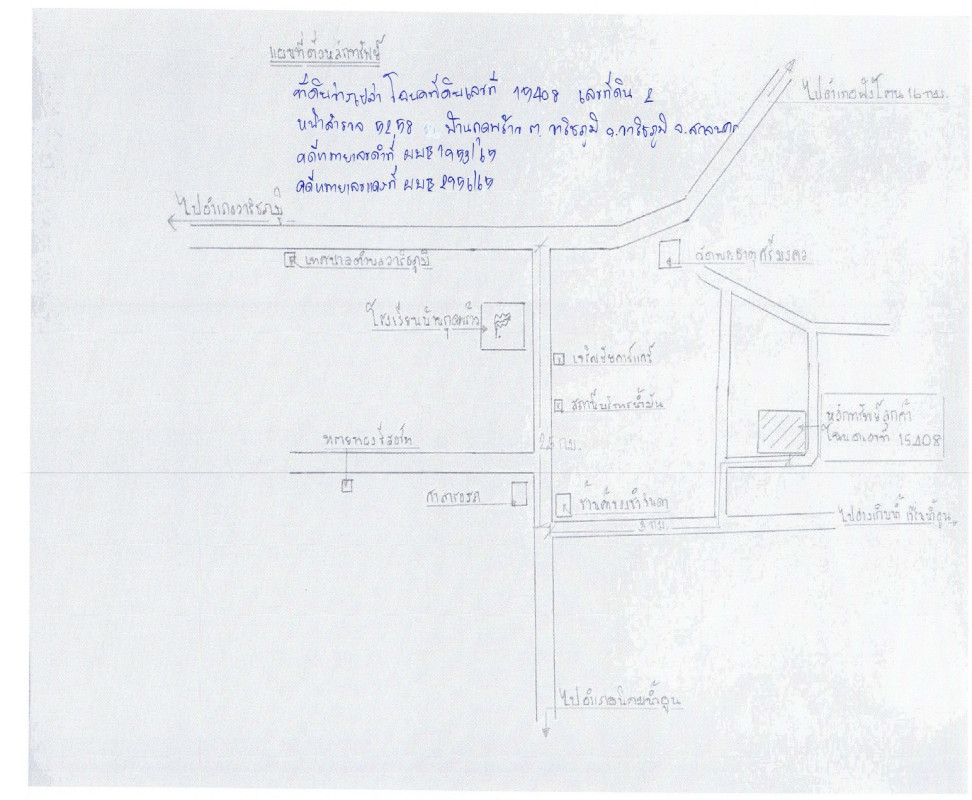 แผนที่ตั้งหลักทรัพย์
ที่ดินว่างเปล่า โฉนดที่ดินเลขที่ 15408 เลขที่ดิน 2
หน้าสำรวจ 5258 บ้านกุดพร้าว ต.วาริชภูมิ อ.วาริชภูมิ จ.สกลนคร
คดีหมายเลขดำที่ ผบE 1953/65
คดีหมายเลขแดงที่ ผบE 2956/65
ไปอำเภอพังโคน 16 กม.
ไปอำเภอวาริชภูมิ
เทศบาลตำบลวาริชภูมิ
วัดพระธาตุศรีมงคล
โรงเรียนบ้านกุดพร้าว
เจริญชัยคาร์แคร์
สถานีบริการน้ำมัน
หลักทรัพย์ลูกค้า
โฉนดเลขที่ 15408
ทรายทองรีสอร์ท
2.5 กม.
ศาลารอรถ
ร้านค้าของชำจินดา
3 กม.
ไปอ่างเก็บน้ำเขื่อนน้ำอูน
ไปอำเภอนิคมน้ำอูน